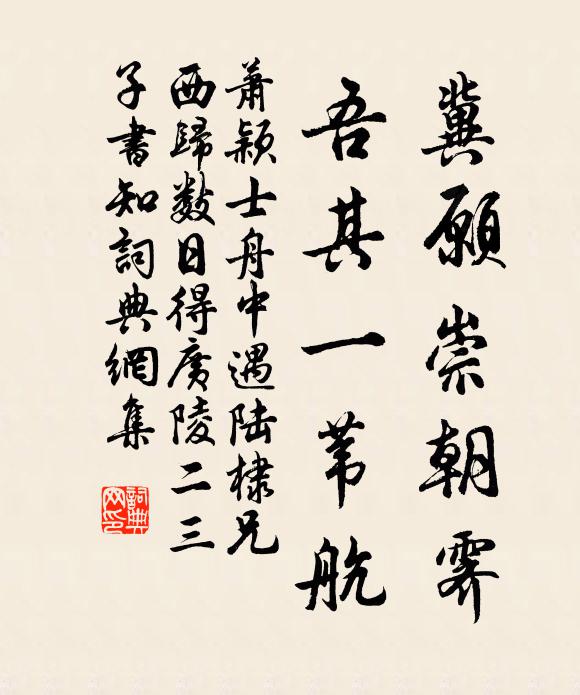 冀願崇朝霽
吾其一葦航
蕭穎士舟中遇陸棣兄
西歸數日得廣陵二三
子書知詞典網集
詞典网印